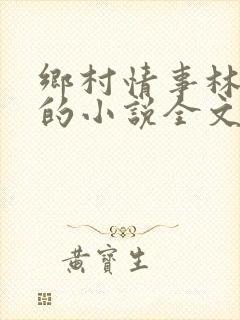 鄉村情事林
的小說全文
黃寶生